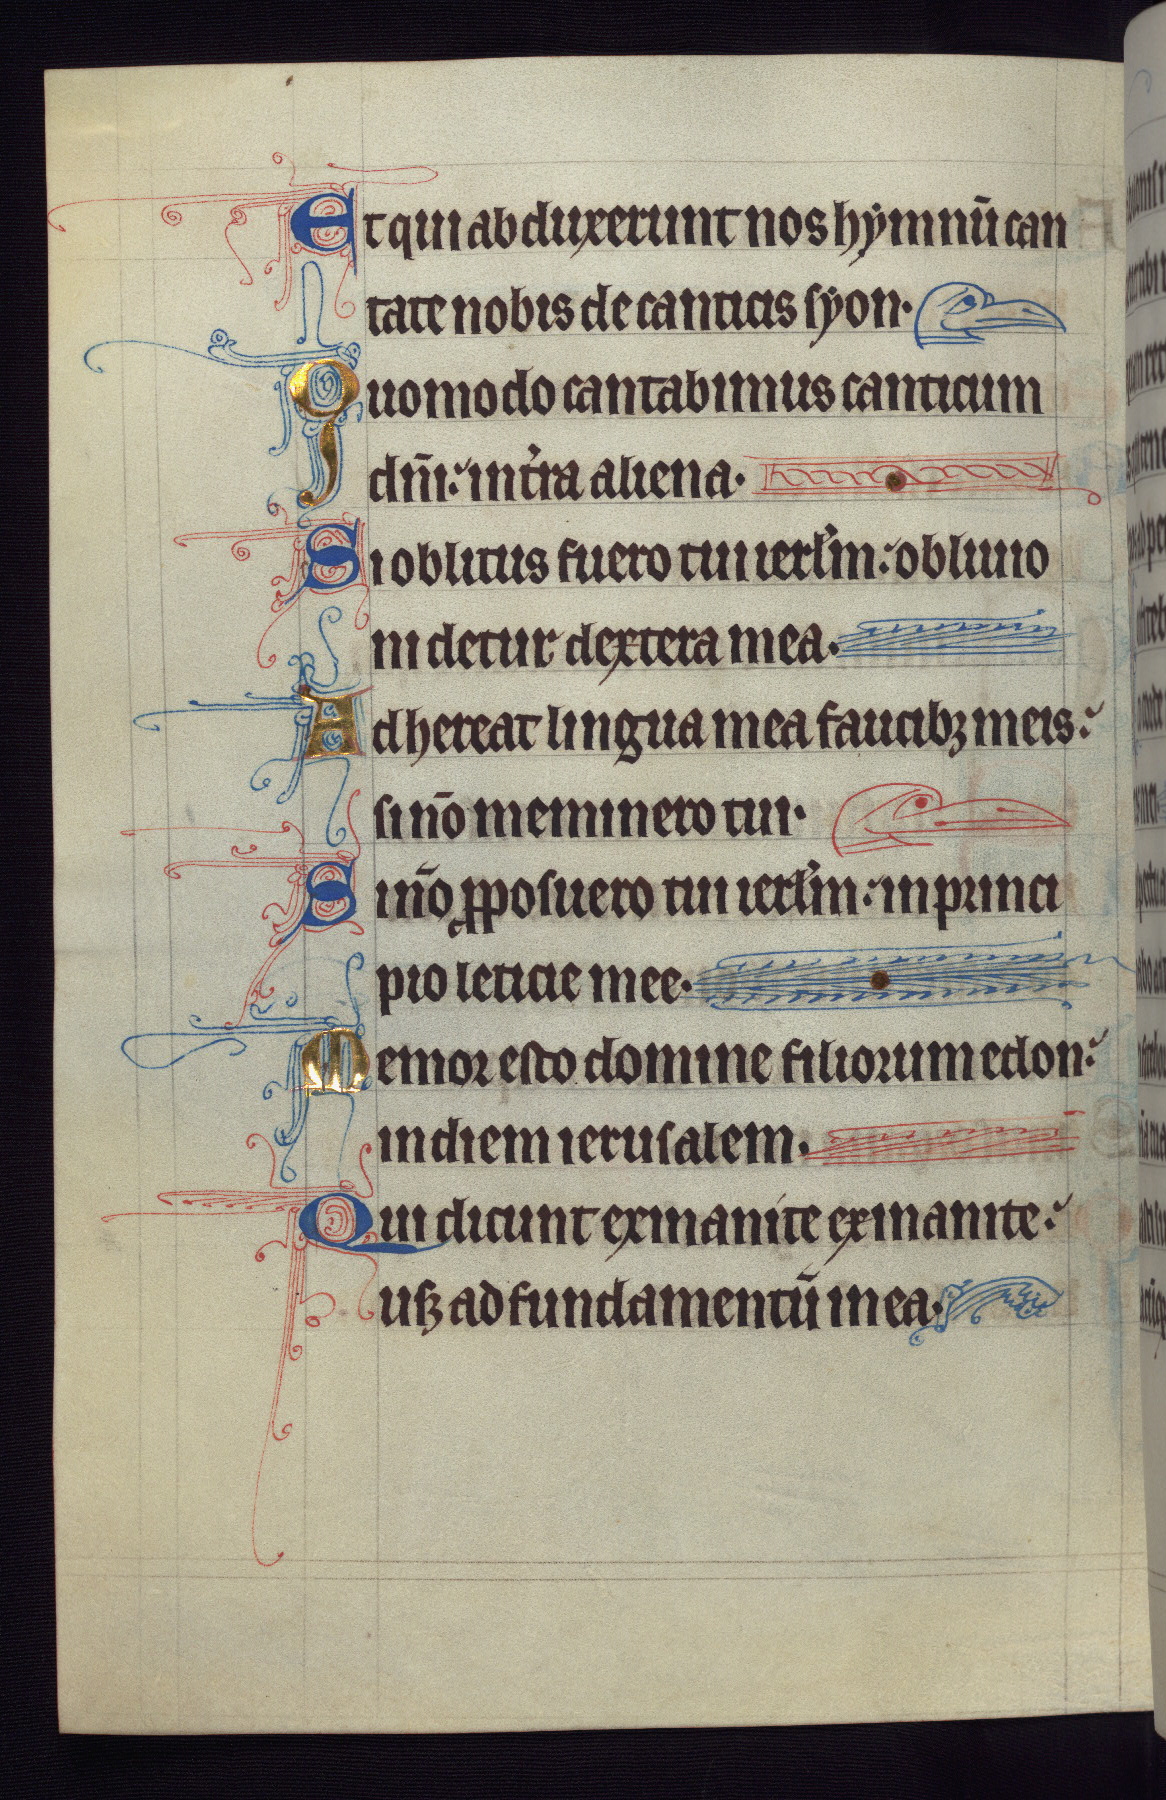 Et qui abduxerunt nos hẏmnū can
tate nobis de canticis sẏon.
Quomodo cantabimus canticum
dn̄i: in t'ra aliena.
Si oblitus fuero tui ierl'm: obliuio
ni detur dextera mea.
Adhereat lingua mea faucibꝫ meis:
si nō meminero tui.
Si nō ꝓposuero tui ierl'm: in princi
pio leticie mee.
Memor esto domine filiorum edon:
in diem ierusalem.
Qui dicunt exinanite exinanite:
usꝫ ad fundamentū in ea.